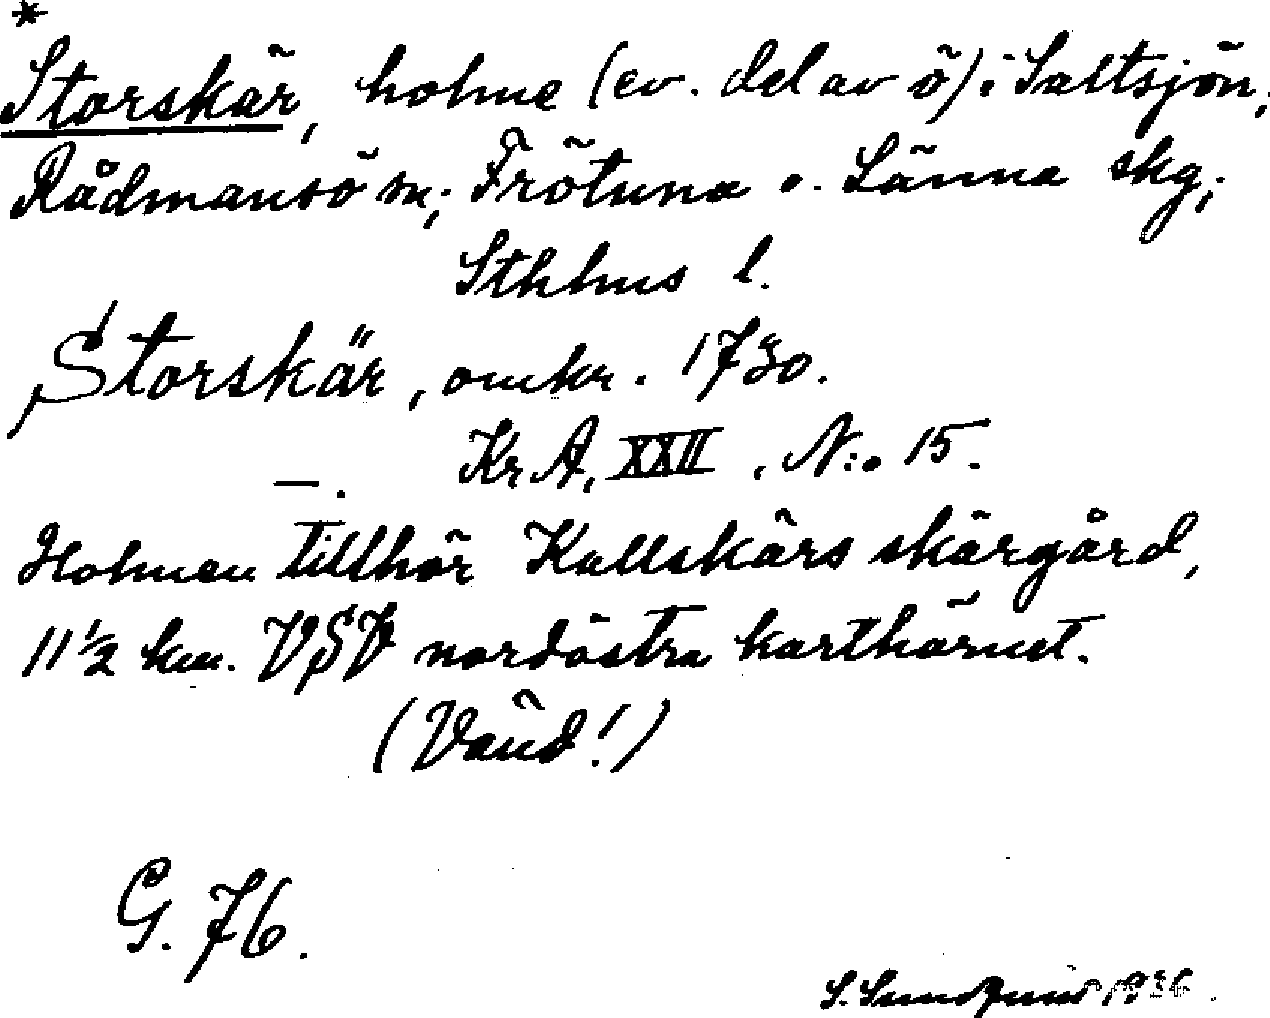 *
Storskär, holme (ev. del av ö) i Saltsjön,
Rådmansö sn; Frötuna o. Länna skg;
Sthlms l.
Storskär, omkr. 1730.
—. Kr A, XXII, N:o 15.
Holmen tillhör Kallskärs skärgård,
11 ½ km. VSV nordöstra karthörnet.
(Vänd!)
G. 76.
S. Sundquist